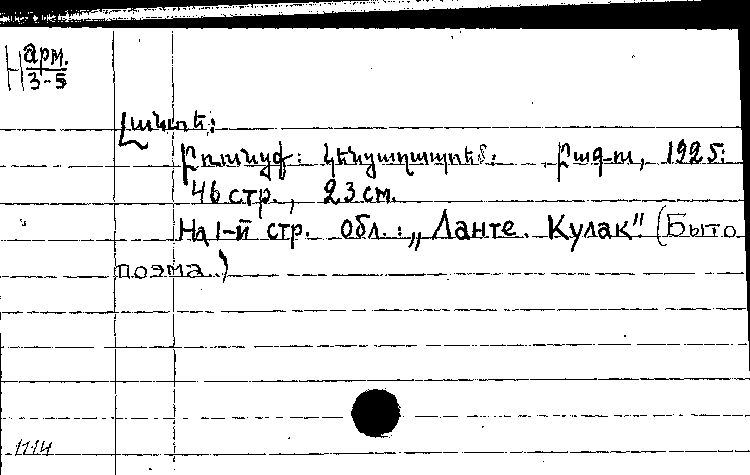 Н арм.
3-5
Լանտե:
Բռունցք: Կենցաղապոեմ: Բագու, 1925:
46 стр., 23 см.
На 1-й стр. обл.: „Ланте. Кулак". (Быто
поэма.)
1714